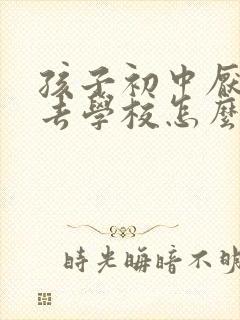 孩子初中厭
去學校怎麼
時光晦暗不明